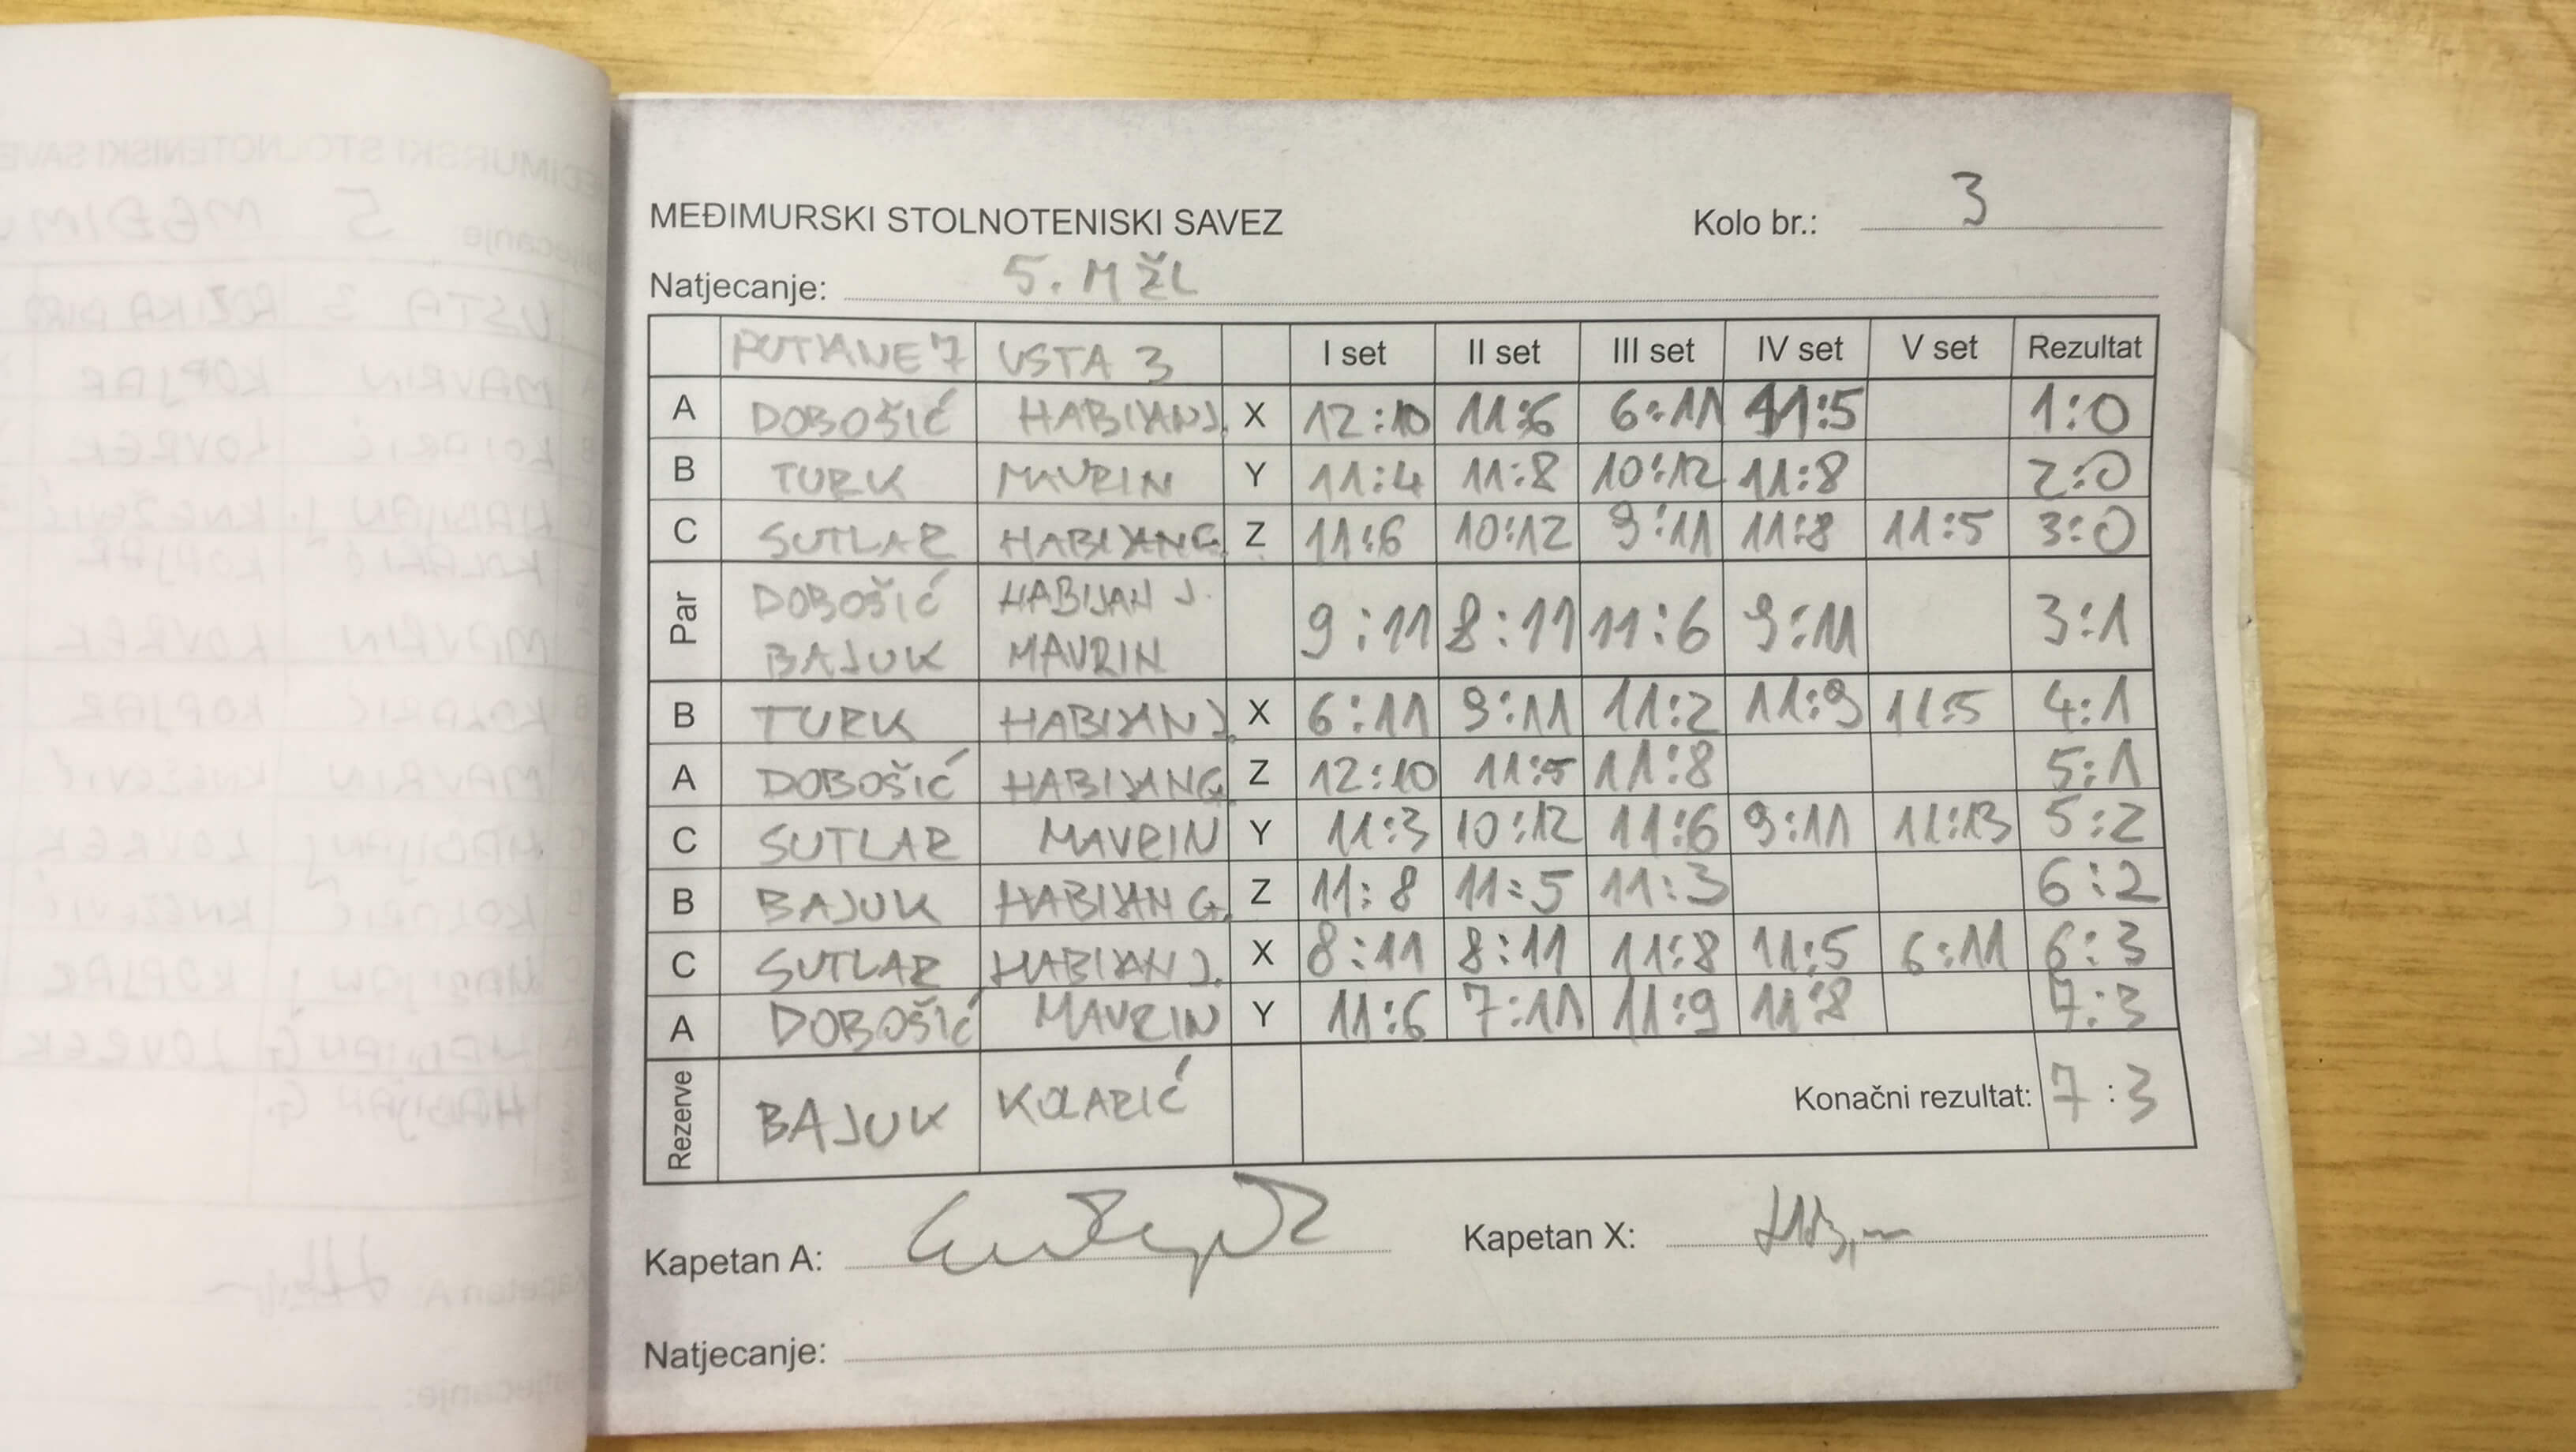 MEĐIMURSKI STOLNOTENISKI SAVEZ Kolo br.: 3
Natjecanje: 5. MŽL
PUTJANE 7 USTA 3 I set II set III set IV set V set Rezultat
A DOBOŠIĆ HABIJAN J. X 12:10 11:6 6:11 11:5 1:0
B TURK MAVRIN Y 11:4 11:8 10:12 11:8 2:0
C SUTLAR HABIJAN G. Z 11:6 10:12 9:11 11:8 11:5 3:0
Par DOBOŠIĆ HABIJAN J. 9:11 8:11 11:6 9:11 3:1
BAJUK MAVRIN
B TURK HABIJAN J. X 6:11 9:11 11:2 11:9 11:5 4:1
A DOBOŠIĆ HABIJAN G. Z 12:10 11:5 11:8 5:1
C SUTLAR MAVRIN Y 11:3 10:12 11:6 9:11 11:13 5:2
B BAJUK HABIJAN G. Z 11:8 11:5 11:3 6:2
C SUTLAR HABIJAN J. X 8:11 8:11 11:8 11:5 6:11 6:3
A DOBOŠIĆ MAVRIN Y 11:6 7:11 11:9 11:8 7:3
Rezerve BAJUK KOLARIĆ Konačni rezultat: 7:3
Kapetan A: Kapetan X:
Natjecanje: